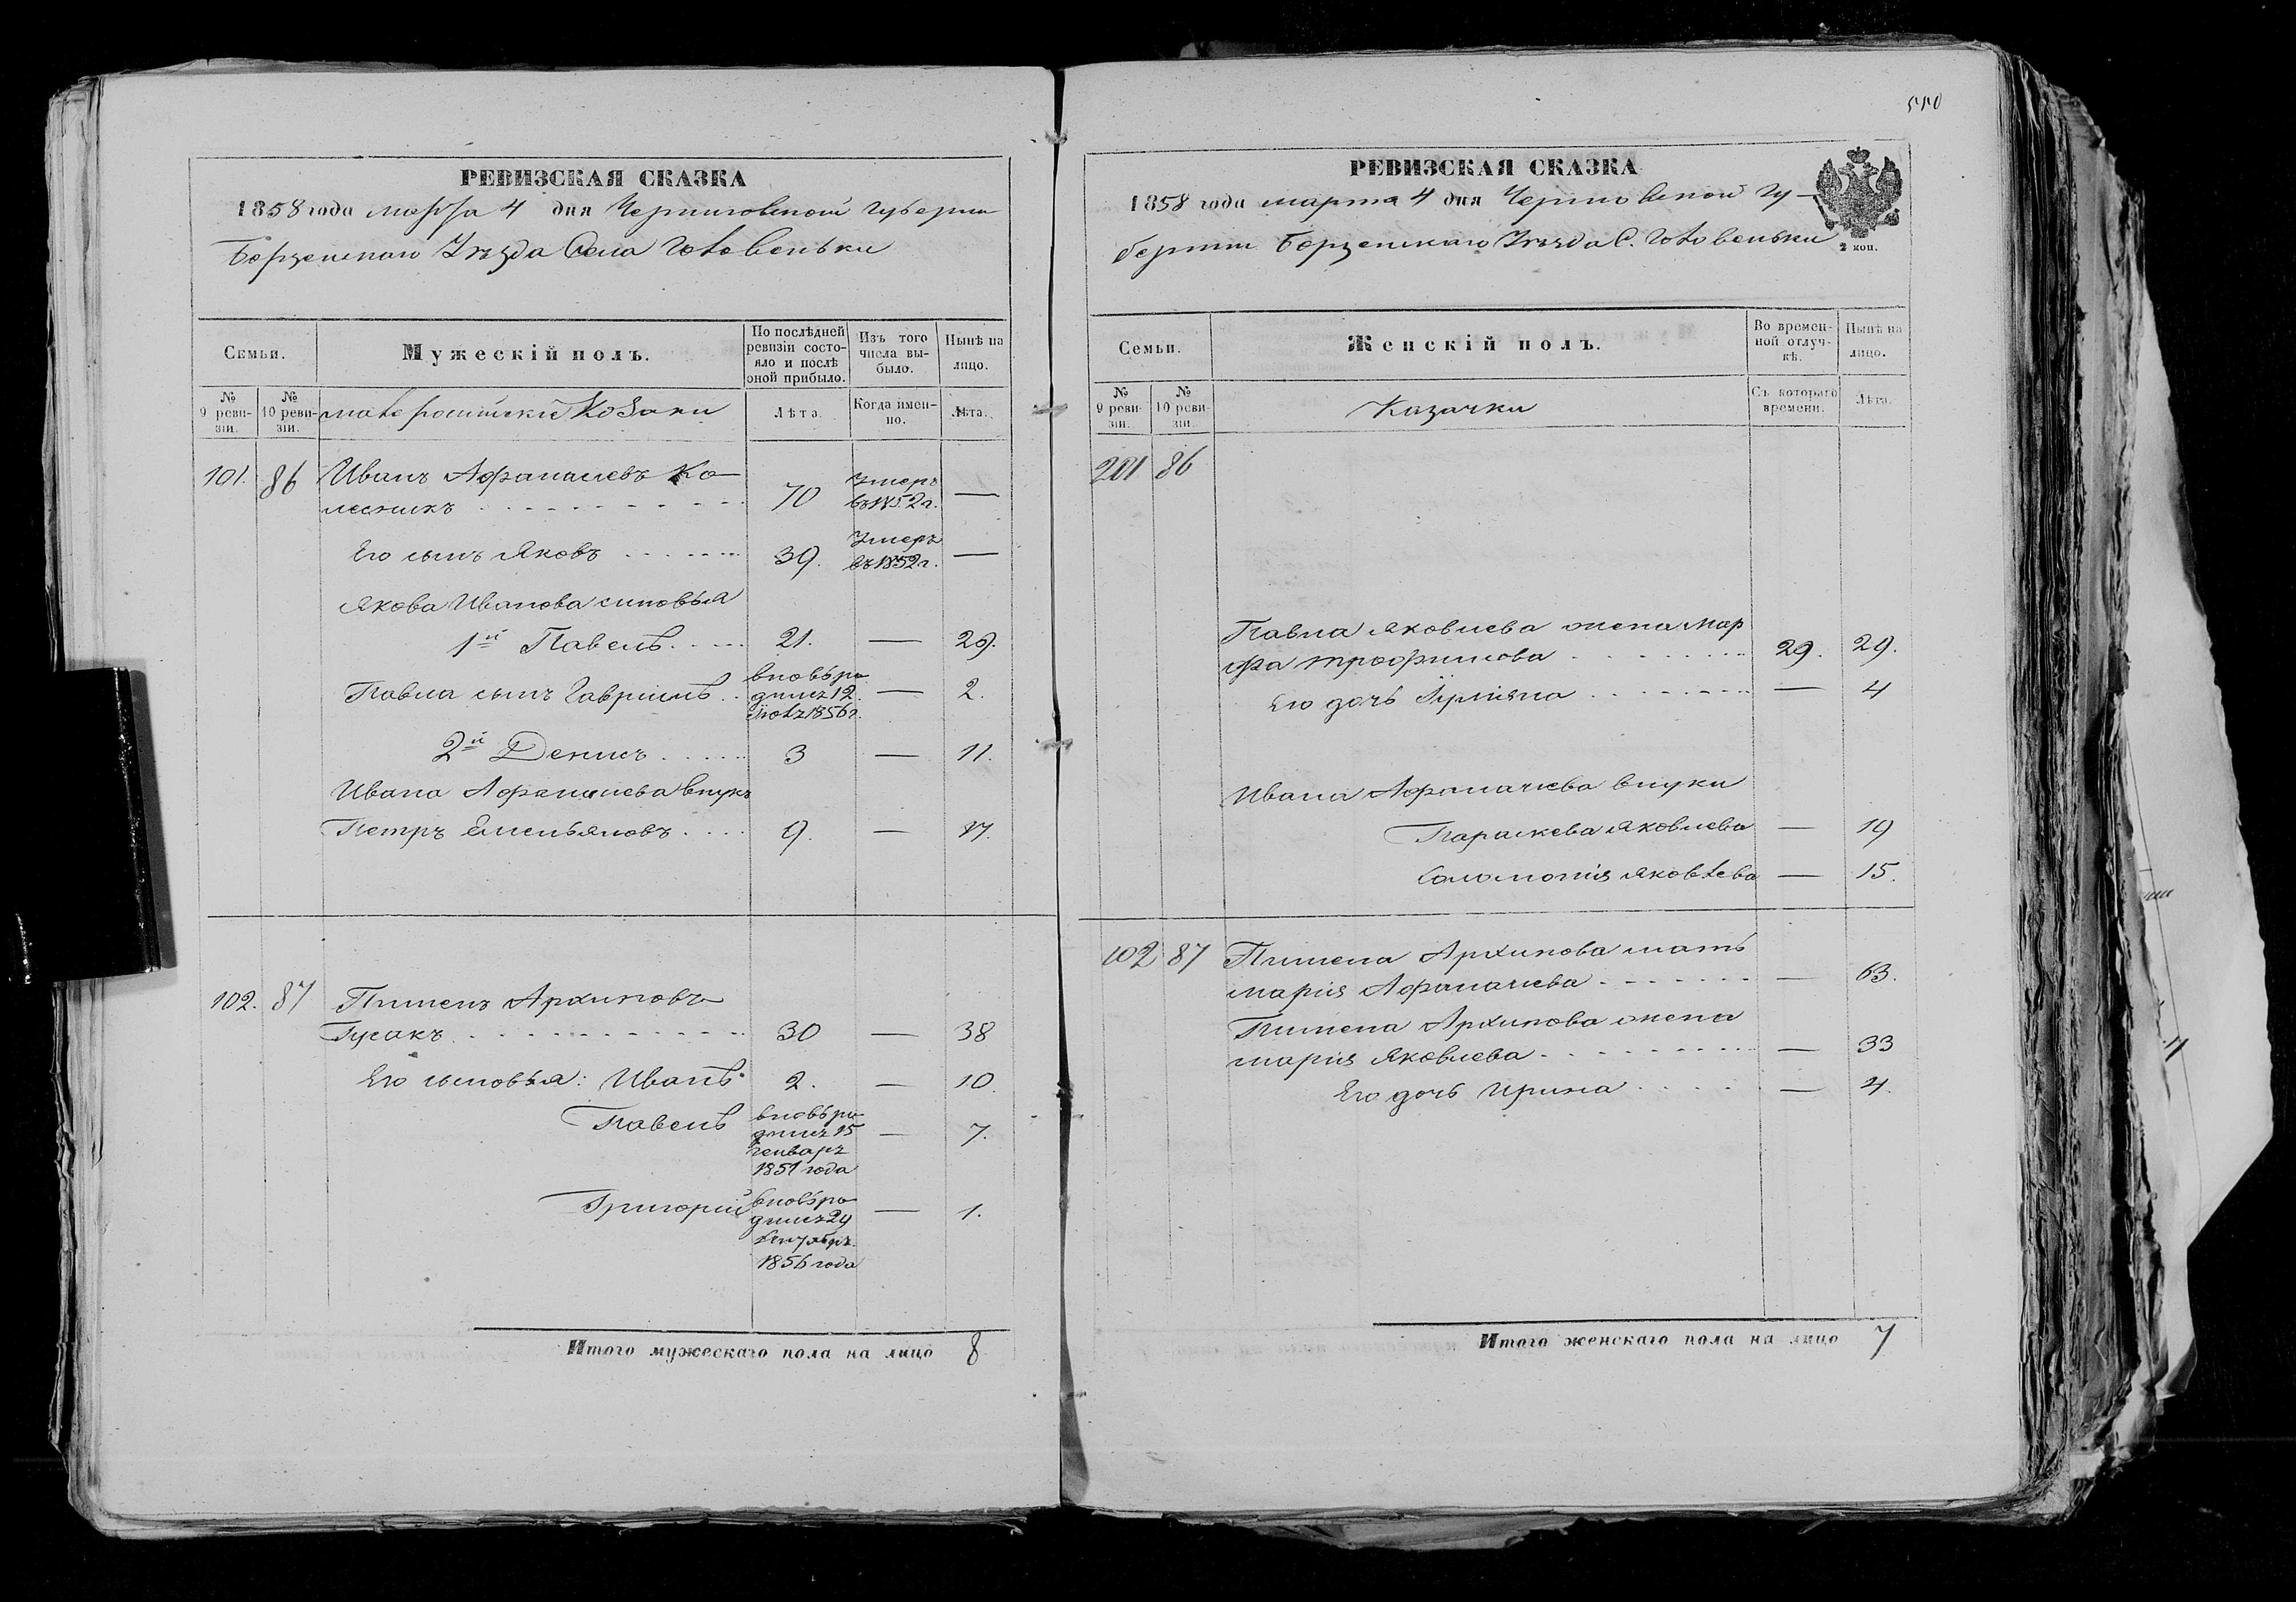 РЕВИЗСКАЯ СКАЗКА
1858 года марта 4 дня Черниговской губерни
Борзенскаго Уѣзда Села Головеньки
Семьи.
Мужескiй полъ.
По послѣдней ревизiи состояло и послѣ оной прибыло.
Изъ того числа выбыло.
Нынѣ на лицо.
№ 9 ревизiи.
№ 10 ревизiи.
малеросiйски Козаки
Лѣта.
Когда именно.
Лѣта.
101. 86 Иванъ Афанасиевъ Ко-
лесникъ 70 Умеръ въ 1852 г. —
Его сынъ Яковъ 39. Умеръ въ 1852 г. —
Якова Иванова синовья
1й Павелъ 21. — 29.
Павла сынъ Гаврiилъ вновь родился 12 1856 г. — 2.
2й Денисъ 3 — 11.
Ивана Афанасиева внукъ
Петръ Емельяновъ 9. — 17.
102. 87 Пименъ Архиповъ
Гусакъ 30 — 38
Его сыновья: Иванъ 2. — 10.
Павелъ вновь родился 15 генваря 1851 года — 7.
Григорiй вновь родился 29 Сентября 1856 года — 1.
Итого мужескаго пола на лицо 8
510
РЕВИЗСКАЯ СКАЗКА
1858 года марта 4 дня Черниговской гу-
бернии Борзенскаго Уѣзда С. Головеньки
2 коп.
Семьи.
Женскiй полъ.
Во временной отлучкѣ.
Нынѣ на лицо.
№ 9 ревизiи.
№ 10 ревизiи.
Казачки
Съ котораго времени.
Лѣта.
201 86
Павла Яковлева жена Мар
фа Трофимова 29. 29.
Его дочь — 4
Ивана Афанасиева внуки
Параскева Яковлева — 19
Соломонiя Яковлева — 15.
102 87 Пимена Архипова мать
марiя Афанасиева — 63.
Пимена Архипова жена
марiя Яковлева — 33
Его дочь Ирина — 4.
Итого женскаго пола на лицо 7